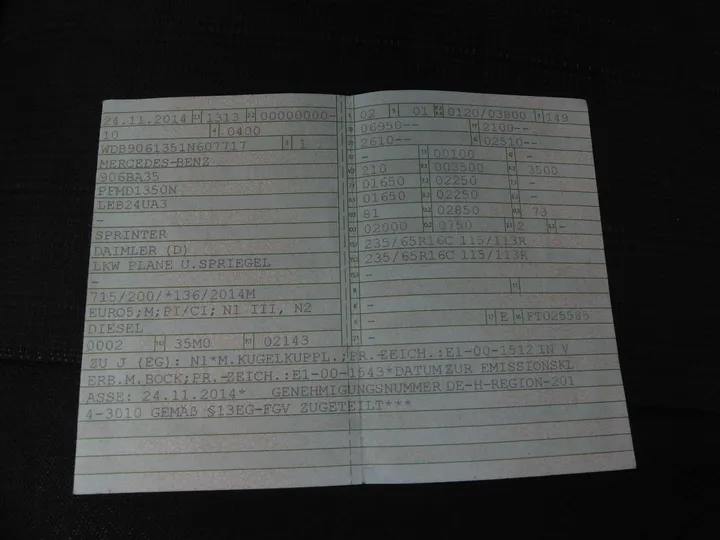 24.11.2014 1313 00000000-
10 0400
WDB9061351N607717 1
MERCEDES-BENZ
906BA35
PFMD1350N
LEB24UA3
-
SPRINTER
DAIMLER (D)
LKW PLANE U.SPRIEGEL
-
715/200/*136/2014M
EURO5;M;PI/CI; N1 III, N2
DIESEL
0002 35M0 02143
02 01 0120/03800 149
06950-- 2100--
2610-- 02510--
- 00100 -
210 003500 3500
01650 02250 -
01650 02250 -
81 02850 73
02000 0750 2 -
235/65R16C 115/113R
235/65R16C 115/113R
-
-
- E FT025585
-
ZU J (EG): N1*M.KUGELKUPPL.;PR.ZEICH.:E1-00-1512 IN V
ERB.M.BOCK;PR.-ZEICH.:E1-00-1643*DATUM ZUR EMISSIONSKL
ASSE: 24.11.2014* GENEHMIGUNGSNUMMER DE-H-REGION-201
4-3010 GEMÄß §13EG-FGV ZUGETEILT***